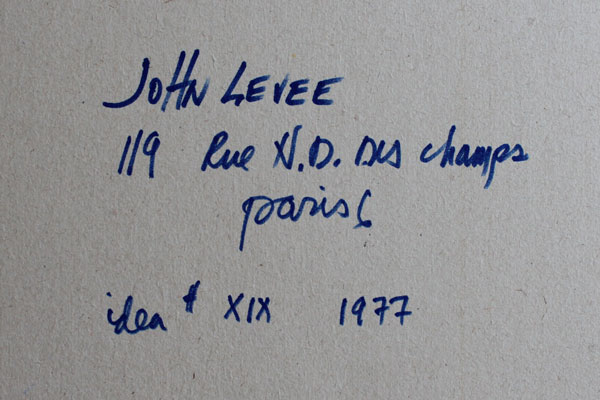 JOHN LEVEE
119 Rue N.D. Des champs
paris 6
idea # XIX 1977